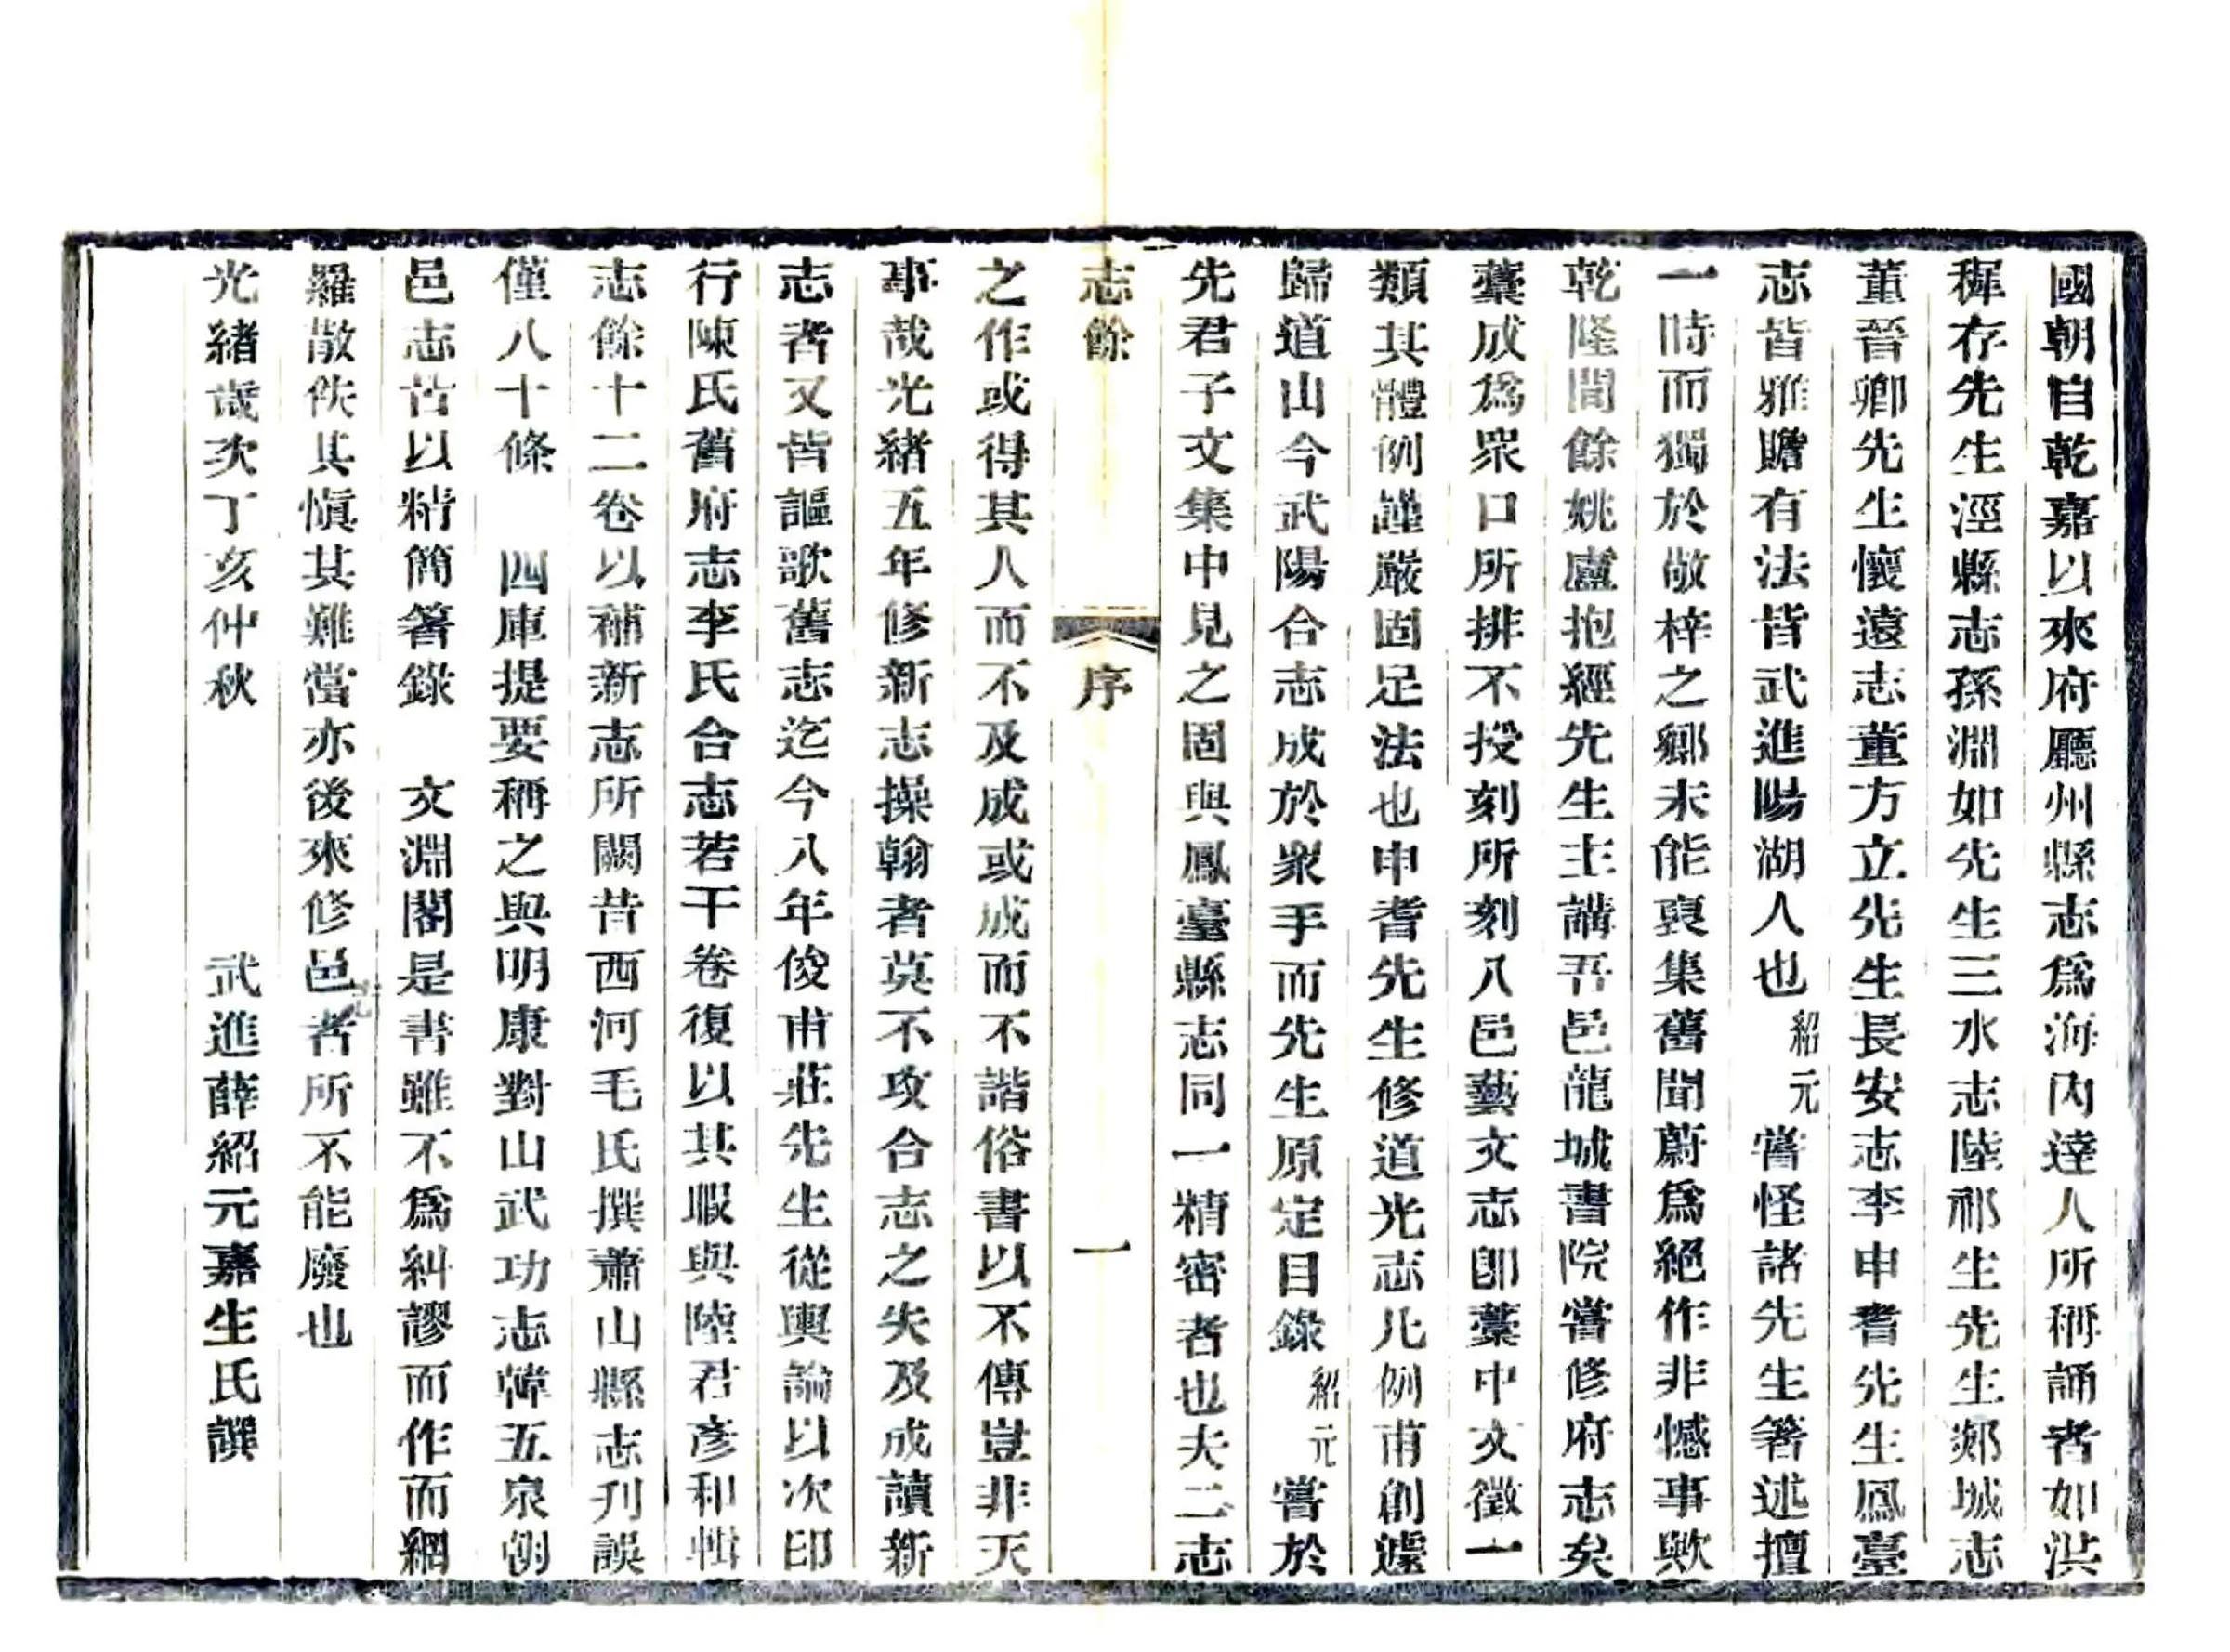 國朝自乾嘉以來府廳州縣志爲海內達人所稱誦者如洪
穉存先生涇縣志孫淵如先生三水志陸祁生先生郯城志
董晉卿先生懷遠志董方立先生長安志李申耆先生鳳臺
志皆雅贍有法皆武進陽湖人也紹元嘗怪諸先生箸述擅
一時而獨於敬梓之鄉未能裒集舊聞蔚爲絕作非憾事歟
乾隆間餘姚盧抱經先生主講吾邑龍城書院嘗修府志矣
藁成爲衆口所排不授刻所刻八邑藝文志卽藁中文徵一
類其體例謹嚴固足法也申耆先生修道光志凡例甫創遽
歸道山今武陽合志成於衆手而先生原定目錄紹元嘗於
先君子文集中見之固與鳳臺縣志同一精密者也夫二志
志餘
序
一
之作或得其人而不及成或成而不諧俗書以不傳豈非天
事哉光緒五年修新志操翰者莫不攻合志之失及成讀新
志者又皆謳歌舊志迄今八年俊甫莊先生從輿論以次印
行陳氏舊府志李氏合志若干卷復以其暇與陸君彥和輯
志餘十二卷以補新志所闕昔西河毛氏撰蕭山縣志刊誤
僅八十條　四庫提要稱之與明康對山武功志韓五泉朝
邑志苦以精簡箸錄　文淵閣是書雖不爲糾謬而作而網
羅散佚其愼其難當亦後來修邑者所不能廢也
光緒歲次丁亥仲秋　武進薛紹元嘉生氏譔